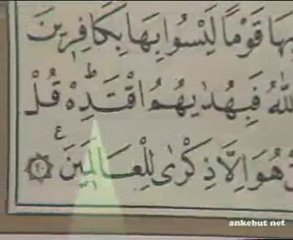 هَا قَوْمًا لَيْسُوا بِهَا بِكَافِرِينَ
اللّٰهُ فَبِهُدٰيهُمُ اقْتَدِهْ قُلْ
هُوَ اِلَّا ذِكْرٰى لِلْعَالَمِينَ
ankebut net